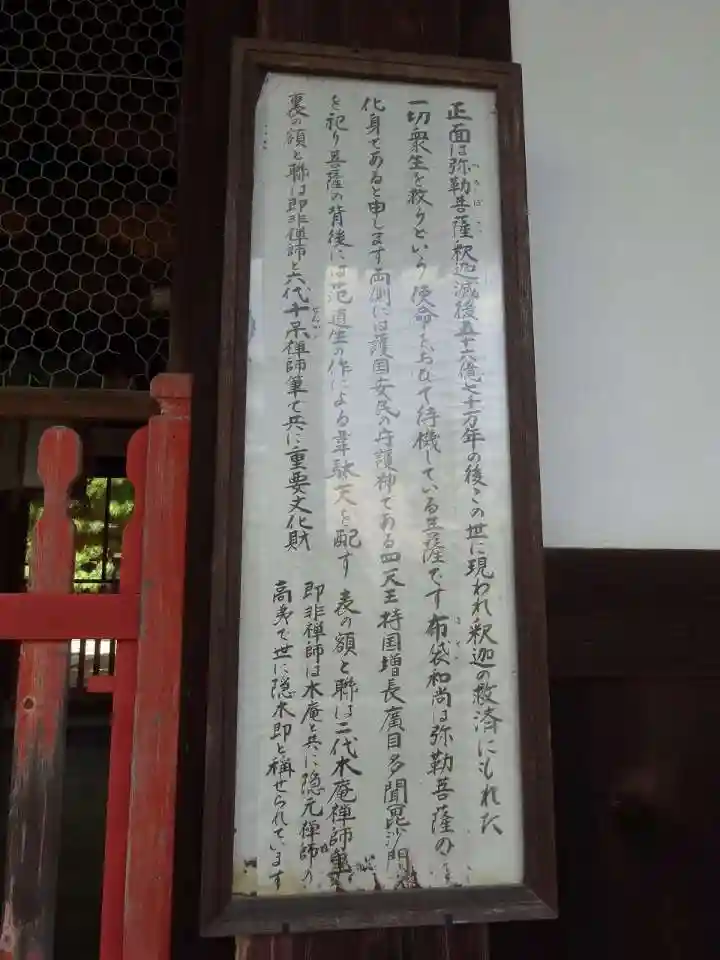 正面は弥勒菩薩釈迦滅後五十六億七千万年の後この世に現われ釈迦の救済にもれた
一切衆生を救うという使命をおびて待機している菩薩です 布袋和尚は弥勒菩薩の
化身であると申します両側には護国安民の守護神である四天王持国増長廣目多聞毘沙門
を祀り菩薩の背後には范道生の作による韋駄天を配す 表の額と聯は二代木庵禅師筆
裏の額と聯は即非禅師と六代千呆禅師筆で共に重要文化財
即非禅師は木庵と共に隠元禅師の
高弟で世に隠木即と稱せられています